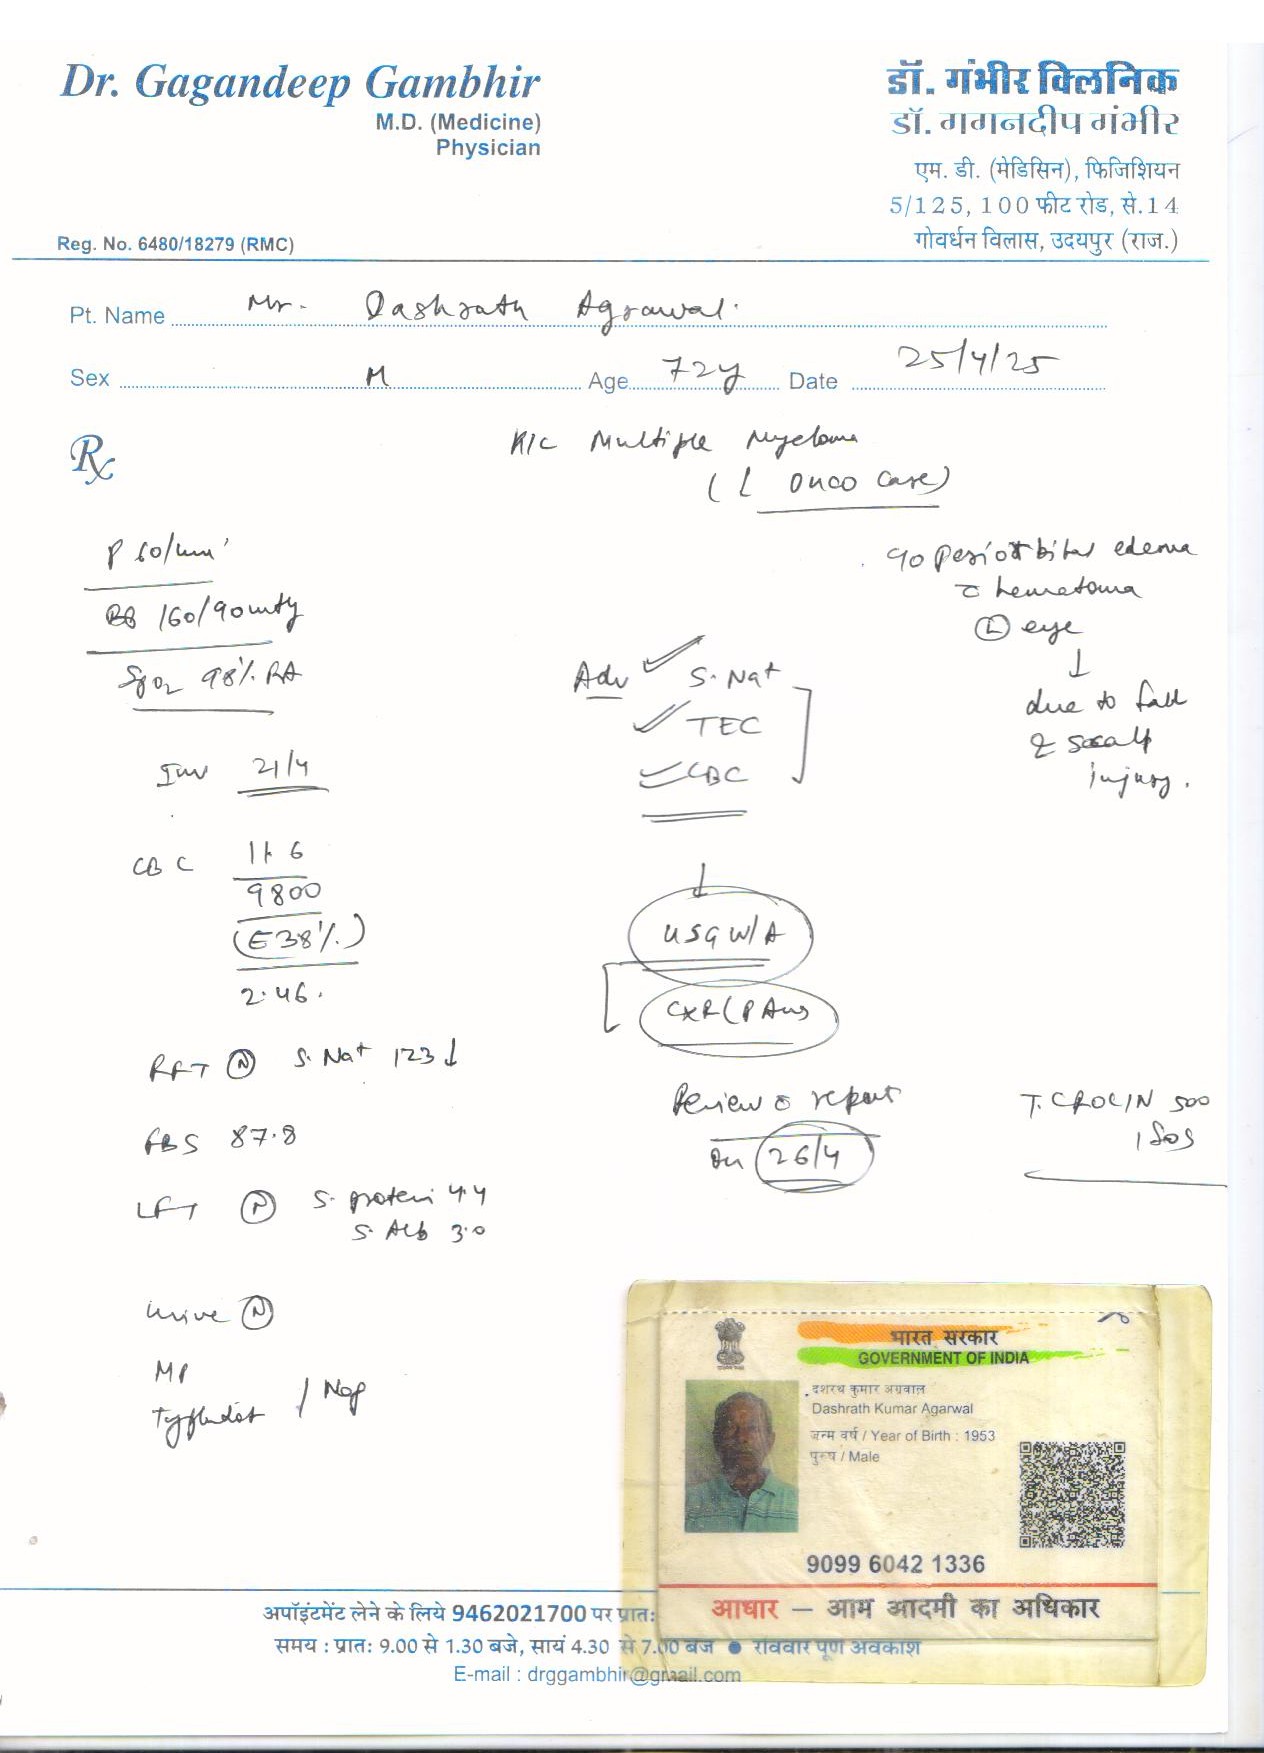 Dr. Gagandeep Gambhir
M.D. (Medicine)
Physician
Reg. No. 6480/18279 (RMC)
डॉ. गंभीर क्लिनिक
डॉ. गगनदीप गंभीर
एम. डी. (मेडिसिन), फिजिशियन
5/125, 100 फीट रोड, से.14
गोवर्धन विलास, उदयपुर (राज.)
Pt. Name Mr. Dashrath Agrawal.
Sex M Age 72y Date 25/4/25
Rx
K/C Multiple Myeloma
Onco case)
P 60/min
160/90 mmHg
SpO2 98% RA
Inv 21/4
CBC 11.6
9800
(E38%)
2.46.
RFT (N) S. Na+ 123↓
FBS 87.8
LFT (N) S. protein 4.4
S. Alb 3.0
Urine (N)
MP
Typhidot / Neg
Adv ✓ S. Na+
✓ TEC
✓ CBC
↓
USG W/A
CXR (PA
Review c report
on 26/4
periorbital edema
c hematoma
(L) eye
↓
due to fall
scalp
injury.
T. CROCIN 500
1 SOS
भारत सरकार
GOVERNMENT OF INDIA
दशरथ कुमार अग्रवाल
Dashrath Kumar Agarwal
जन्म वर्ष / Year of Birth : 1953
पुरुष / Male
9099 6042 1336
आधार – आम आदमी का अधिकार
अपॉइंटमेंट लेने के लिये 9462021700 पर प्रातः
समय : प्रातः 9.00 से 1.30 बजे, सायं 4.30 से 7.00 बजे ● रविवार पूर्ण अवकाश
E-mail : drggambhir@gmail.com